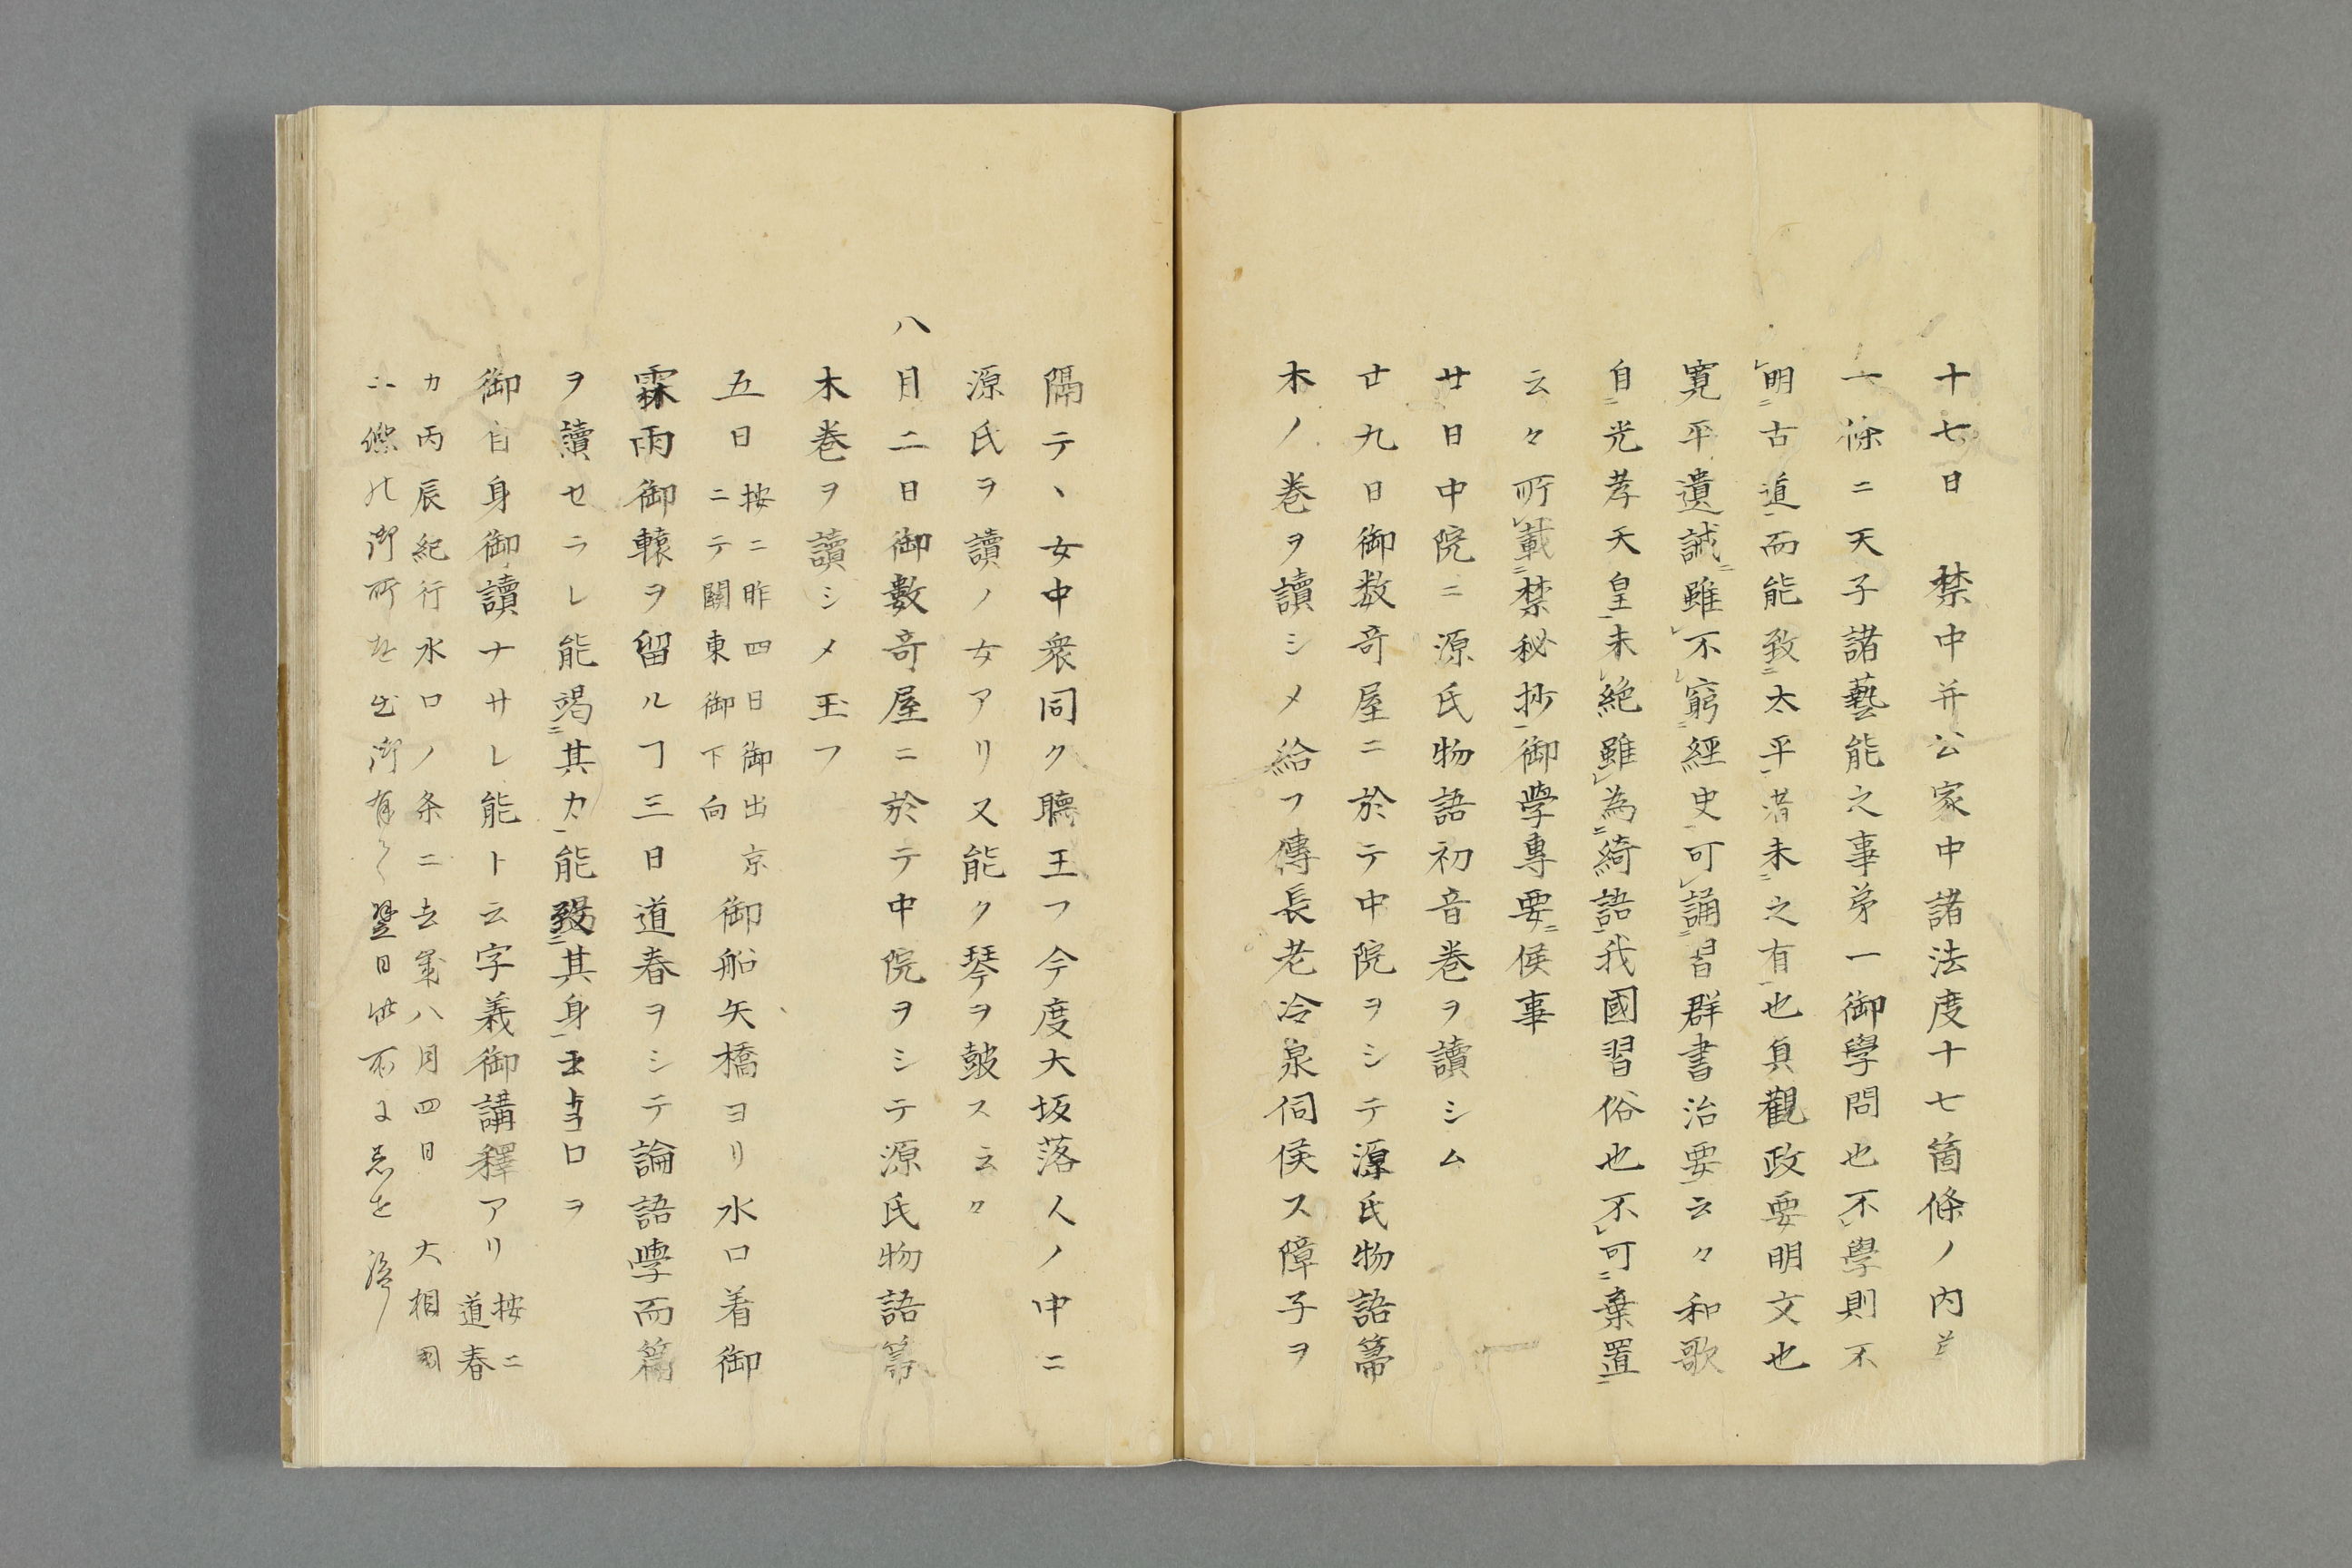 十七日　禁中并公家中諸法度十七箇條ノ内
一條ニ天子諸藝能之事第一御學問也不レ學則不
レ明ニ古道一而能致ニ太平一者未ニ之有一也貞觀政要明文也
寛平遺誡ニ雖レ不レ窮ニ經史一可レ誦ニ習群書治要一云々和歌
自ニ光孝天皇一未レ絶雖レ為ニ綺語一我國習俗也不レ可ニ棄置ニ
云々所レ載ニ禁秘抄一御學専要ニ候事
廿日中院ニ源氏物語初音巻ヲ讀シム
廿九日御数奇屋ニ於テ中院ヲシテ源氏物語箒
木ノ巻ヲ讀シメ給フ傳長老冷泉伺候ス障子ヲ
隔テヽ女中衆同ク聴玉フ今度大坂落人ノ中ニ
源氏ヲ讀ノ女アリ又能ク琴ヲ皷ス云々
八月二日御數奇屋ニ於テ中院ヲシテ源氏物語箒
木巻ヲ讀シメ玉フ
五日按ニ昨四日御出京
ニテ關東御下向御船矢橋ヨリ水口着御
霖雨御轅ヲ留ルヿ三日道春ヲシテ論語學而篇
ヲ讀セラレ能竭ニ其力一能致ニ其身一ロヲ
御自身御讀ナサレ能ト云字義御講釋アリ按ニ
道春
カ丙辰紀行水口ノ条ニ去歳八月四日　大相國
翌日